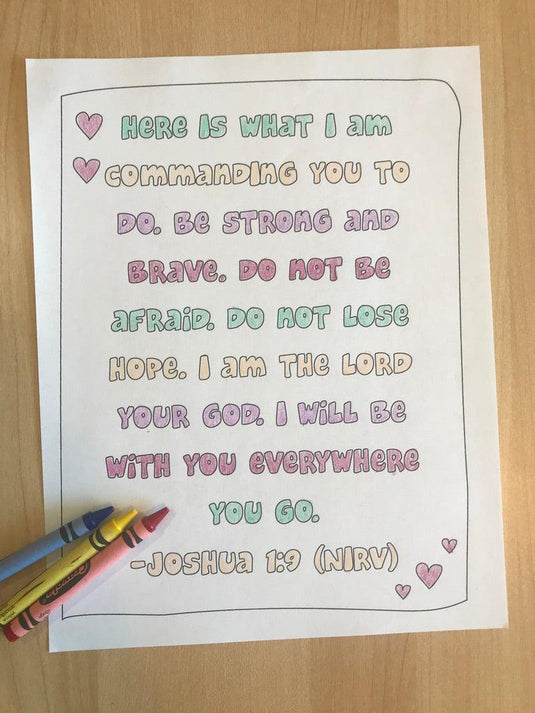 Here is what I am
commanding you to
do. Be strong and
brave. Do not be
afraid. Do not lose
hope. I am the Lord
your God. I will be
with you everywhere
you go.
-Joshua 1:9 (NIRV)
Crayola